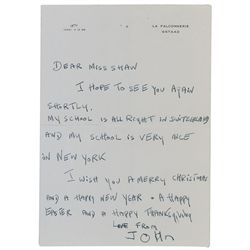 LA FALCONNERIE
GSTAAD
DEAR MISS SHAW
I HOPE TO SEE YOU AGAIN
SHORTLY.
MY SCHOOL IS ALL RIGHT IN SWITZERLAND
AND MY SCHOOL IS VERY NICE
IN NEW YORK
I WISH YOU A MERRY CHRISTMAS
AND A HAPPY NEW YEAR + A HAPPY
EASTER AND A HAPPY THANKSGIVING
LOVE FROM
JOHN